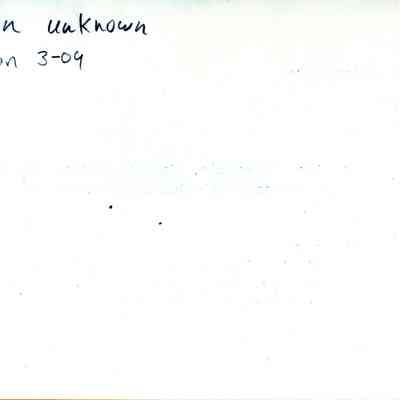 n unknown
on 3-04